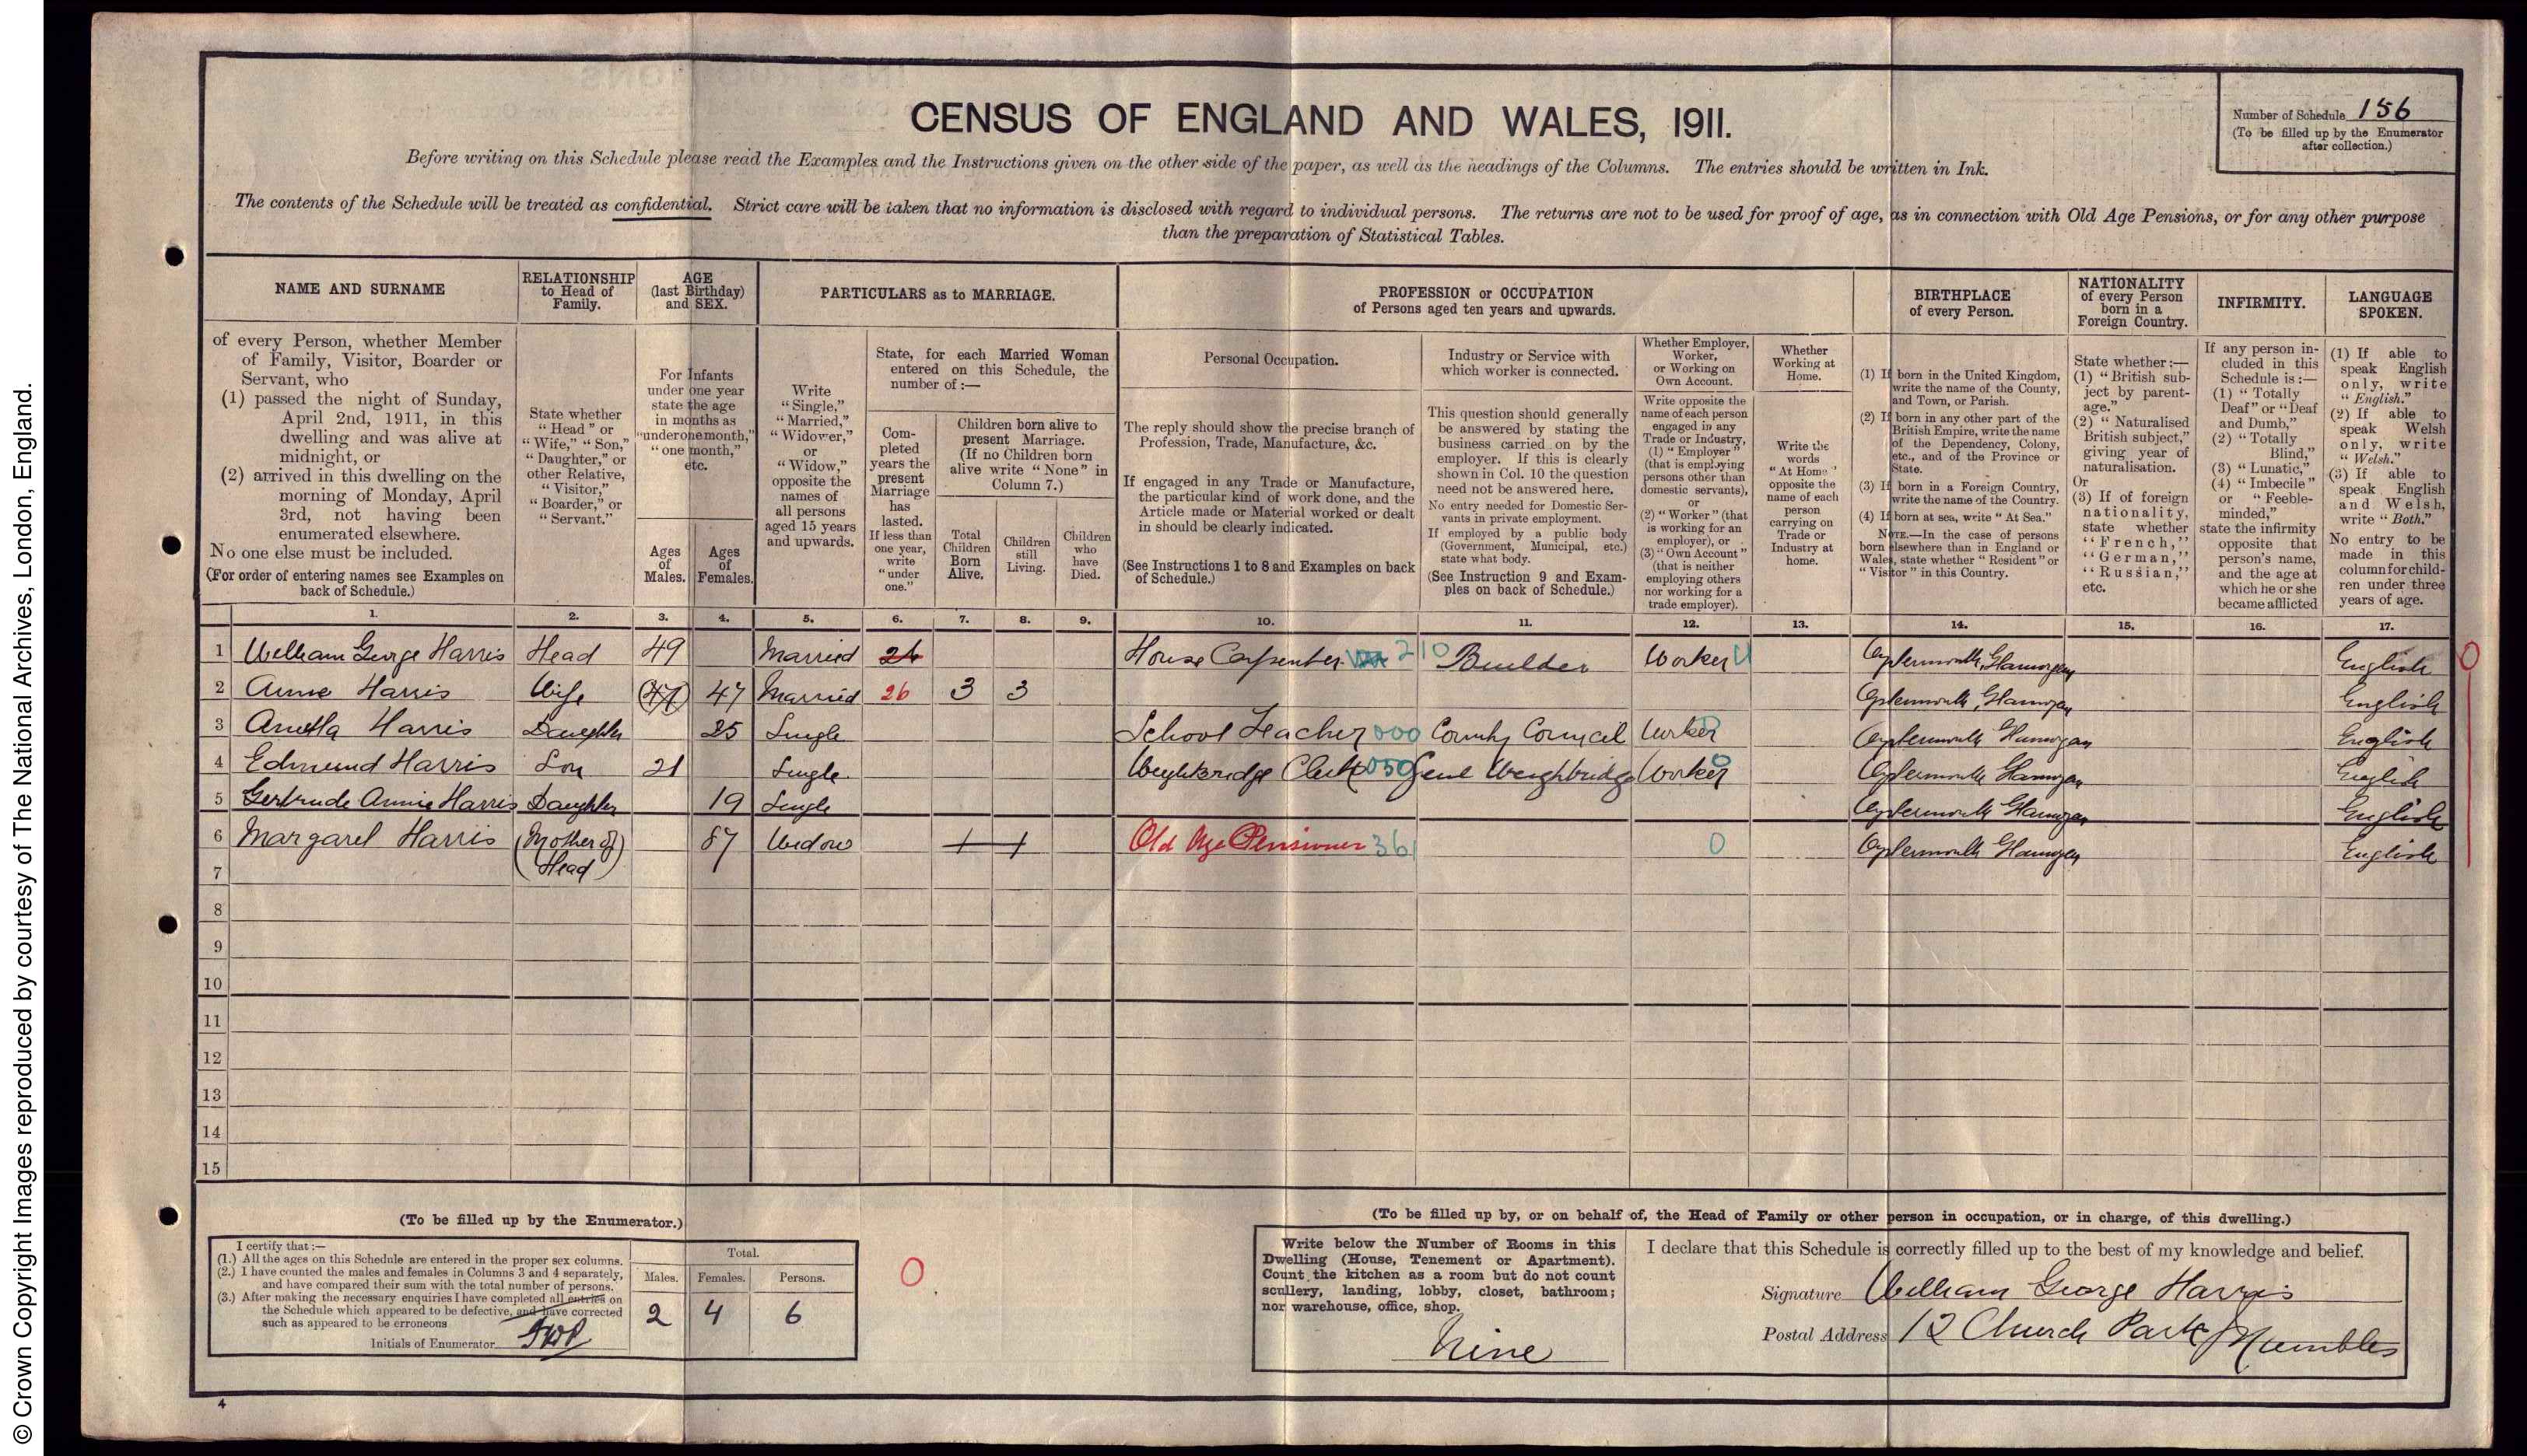 © Crown Copyright Images reproduced by courtesy of The National Archives, London, England.
CENSUS OF ENGLAND AND WALES, 1911.
Number of Schedule 156
(To be filled up by the Enumerator
after collection.)
Before writing on this Schedule please read the Examples and the Instructions given on the other side of the paper, as well as the headings of the Columns. The entries should be written in Ink.
The contents of the Schedule will be treated as confidential. Strict care will be taken that no information is disclosed with regard to individual persons. The returns are not to be used for proof of age, as in connection with Old Age Pensions, or for any other purpose
than the preparation of Statistical Tables.
NAME AND SURNAME
of every Person, whether Member
of Family, Visitor, Boarder or
Servant, who
(1) passed the night of Sunday,
April 2nd, 1911, in this
dwelling and was alive at
midnight, or
(2) arrived in this dwelling on the
morning of Monday, April
3rd, not having been
enumerated elsewhere.
No one else must be included.
(For order of entering names see Examples on
back of Schedule.)
RELATIONSHIP
to Head of
Family.
State whether
"Head" or
"Wife," "Son,"
"Daughter," or
other Relative,
"Visitor,"
"Boarder," or
"Servant."
AGE
(last Birthday)
and SEX.
For Infants
under one year
state the age
in months as
"under one month,"
"one month,"
etc.
Ages
of
Males.
Ages
of
Females.
PARTICULARS as to MARRIAGE.
Write
"Single,"
"Married,"
"Widower,"
or
"Widow,"
opposite the
names of
all persons
aged 15 years
and upwards.
State, for each Married Woman
entered on this Schedule, the
number of :—
Com-
pleted
years the
present
Marriage
has
lasted.
If less than
one year,
write
"under
one."
Children born alive to
present Marriage.
(If no Children born
alive write "None" in
Column 7.)
Total
Children
Born
Alive.
Children
still
Living.
Children
who
have
Died.
PROFESSION or OCCUPATION
of Persons aged ten years and upwards.
Personal Occupation.
The reply should show the precise branch of
Profession, Trade, Manufacture, &c.
If engaged in any Trade or Manufacture,
the particular kind of work done, and the
Article made or Material worked or dealt
in should be clearly indicated.
(See Instructions 1 to 8 and Examples on back
of Schedule.)
Industry or Service with
which worker is connected.
This question should generally
be answered by stating the
business carried on by the
employer. If this is clearly
shown in Col. 10 the question
need not be answered here.
No entry needed for Domestic Ser-
vants in private employment.
If employed by a public body
(Government, Municipal, etc.)
state what body.
(See Instruction 9 and Exam-
ples on back of Schedule.)
Whether Employer,
Worker,
or Working on
Own Account.
Write opposite the
name of each person
engaged in any
Trade or Industry,
(1) "Employer"
(that is employing
persons other than
domestic servants),
or
(2) "Worker" (that
is working for an
employer), or
(3) "Own Account"
(that is neither
employing others
nor working for a
trade employer).
Whether
Working at
Home.
Write the
words
"At Home"
opposite the
name of each
person
carrying on
Trade or
Industry at
home.
BIRTHPLACE
of every Person.
(1) If born in the United Kingdom,
write the name of the County,
and Town, or Parish.
(2) If born in any other part of the
British Empire, write the name
of the Dependency, Colony,
etc., and of the Province or
State.
(3) If born in a Foreign Country,
write the name of the Country.
(4) If born at sea, write "At Sea."
NOTE.—In the case of persons
born elsewhere than in England or
Wales, state whether "Resident" or
"Visitor" in this Country.
NATIONALITY
of every Person
born in a
Foreign Country.
State whether :—
(1) "British sub-
ject by parent-
age."
(2) "Naturalised
British subject,"
giving year of
naturalisation.
Or
(3) If of foreign
nationality,
state whether
"French,"
"German,"
"Russian,"
etc.
INFIRMITY.
If any person in-
cluded in this
Schedule is :—
(1) "Totally
Deaf" or "Deaf
and Dumb,"
(2) "Totally
Blind,"
(3) "Lunatic,"
(4) "Imbecile"
or "Feeble-
minded,"
state the infirmity
opposite that
person's name,
and the age at
which he or she
became afflicted
LANGUAGE
SPOKEN.
(1) If able to
speak English
only, write
"English."
(2) If able to
speak Welsh
only, write
"Welsh."
(3) If able to
speak English
and Welsh,
write "Both."
No entry to be
made in this
column for child-
ren under three
years of age.
1. 2. 3. 4. 5. 6. 7. 8. 9. 10. 11. 12. 13. 14. 15. 16. 17.
1 William George Harris Head 49 Married 26 House Carpenter 210 Builder Worker Oystermouth, Glamorgan English
2 Annie Harris Wife 47 47 Married 26 3 3 Oystermouth, Glamorgan English
3 Harris Daughter 25 Single School Teacher 000 County Council Worker Oystermouth Glamorgan English
4 Edmund Harris Son 21 Single Weighbridge Clerk 050 Genl Weighbridge Worker Oystermouth Glamorgan English
5 Gertrude Annie Harris Daughter 19 Single Oystermouth Glamorgan English
6 Margaret Harris (Mother of 87 Widow Old Age Pensioner 36 0 Oystermouth Glamorgan English
7 Head)
8
9
10
11
12
13
14
15
(To be filled up by the Enumerator.)
I certify that :—
(1.) All the ages on this Schedule are entered in the proper sex columns.
(2.) I have counted the males and females in Columns 3 and 4 separately,
and have compared their sum with the total number of persons.
(3.) After making the necessary enquiries I have completed all entries on
the Schedule which appeared to be defective, and have corrected
such as appeared to be erroneous
Initials of Enumerator
Total.
Males. Females. Persons.
2 4 6
0
(To be filled up by, or on behalf of, the Head of Family or other person in occupation, or in charge, of this dwelling.)
Write below the Number of Rooms in this
Dwelling (House, Tenement or Apartment).
Count the kitchen as a room but do not count
scullery, landing, lobby, closet, bathroom;
nor warehouse, office, shop.
Nine
I declare that this Schedule is correctly filled up to the best of my knowledge and belief.
Signature William George Harris
Postal Address 12 Church Park Mumbles
4